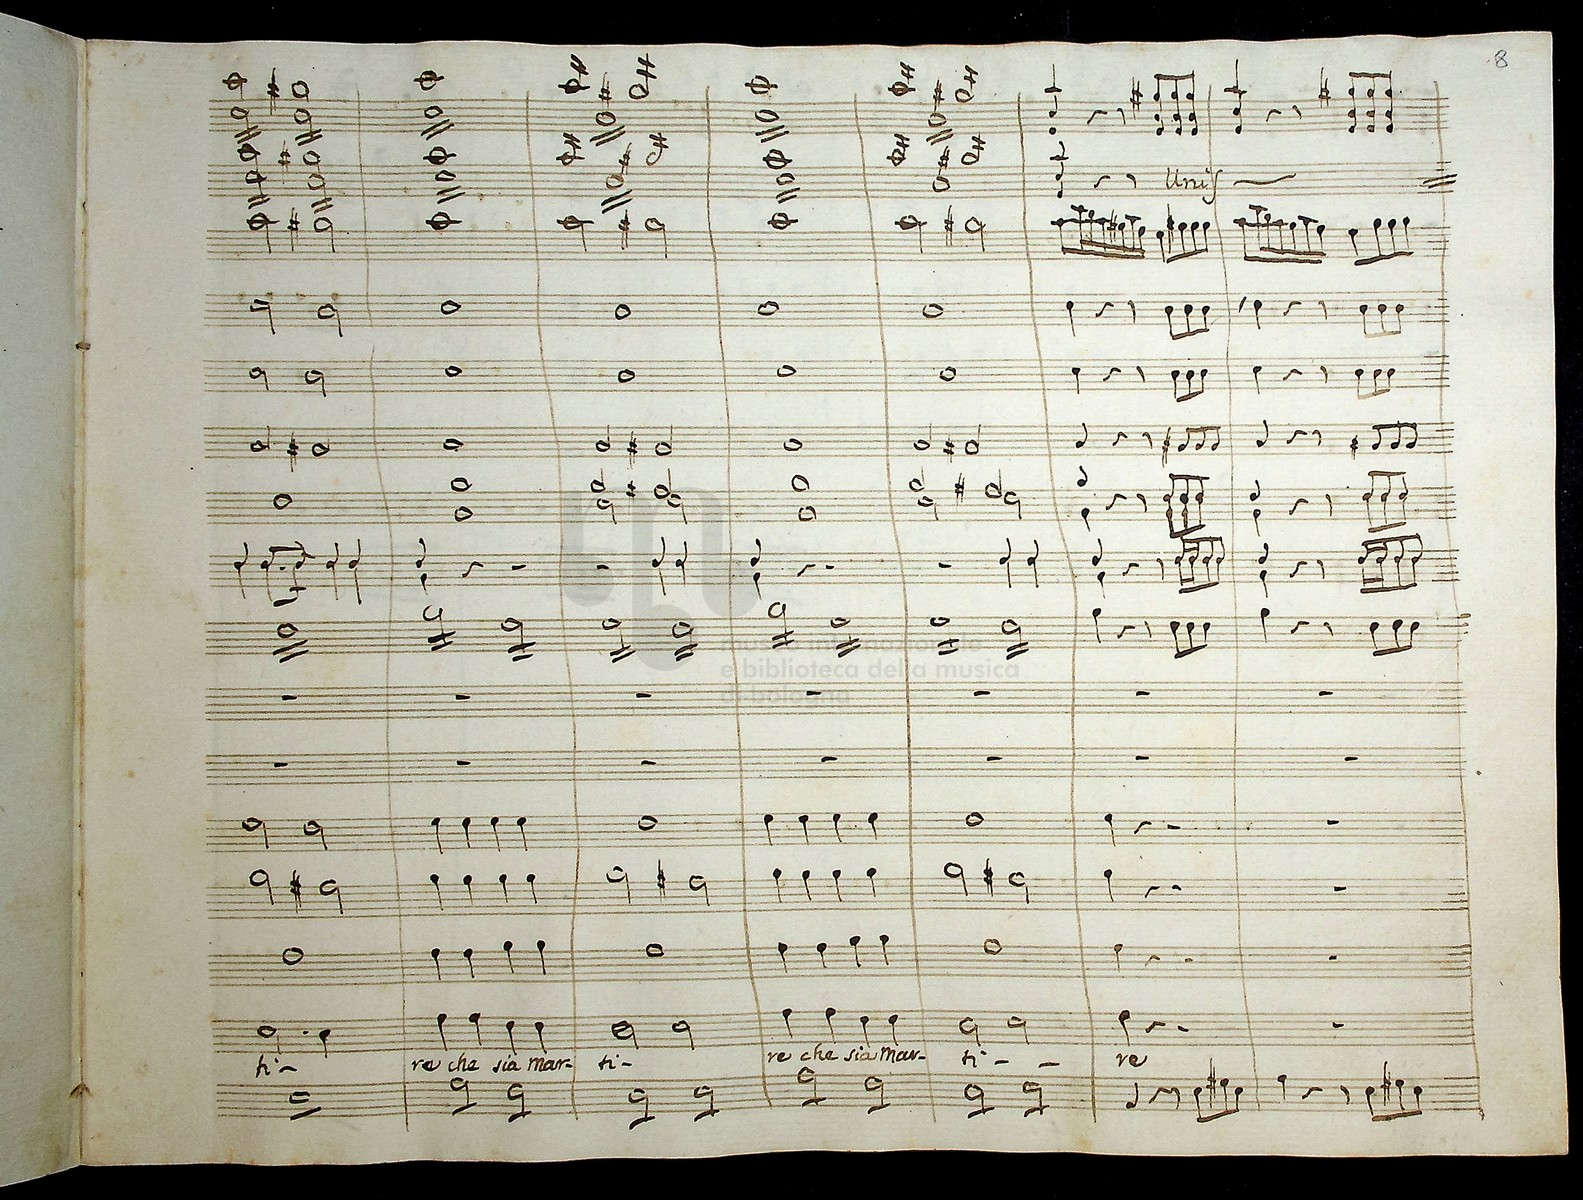 8
Unis
museo internazionale
e biblioteca della musica
di bologna
ti - re che sia mar- ti - re che sia mar- ti - - re